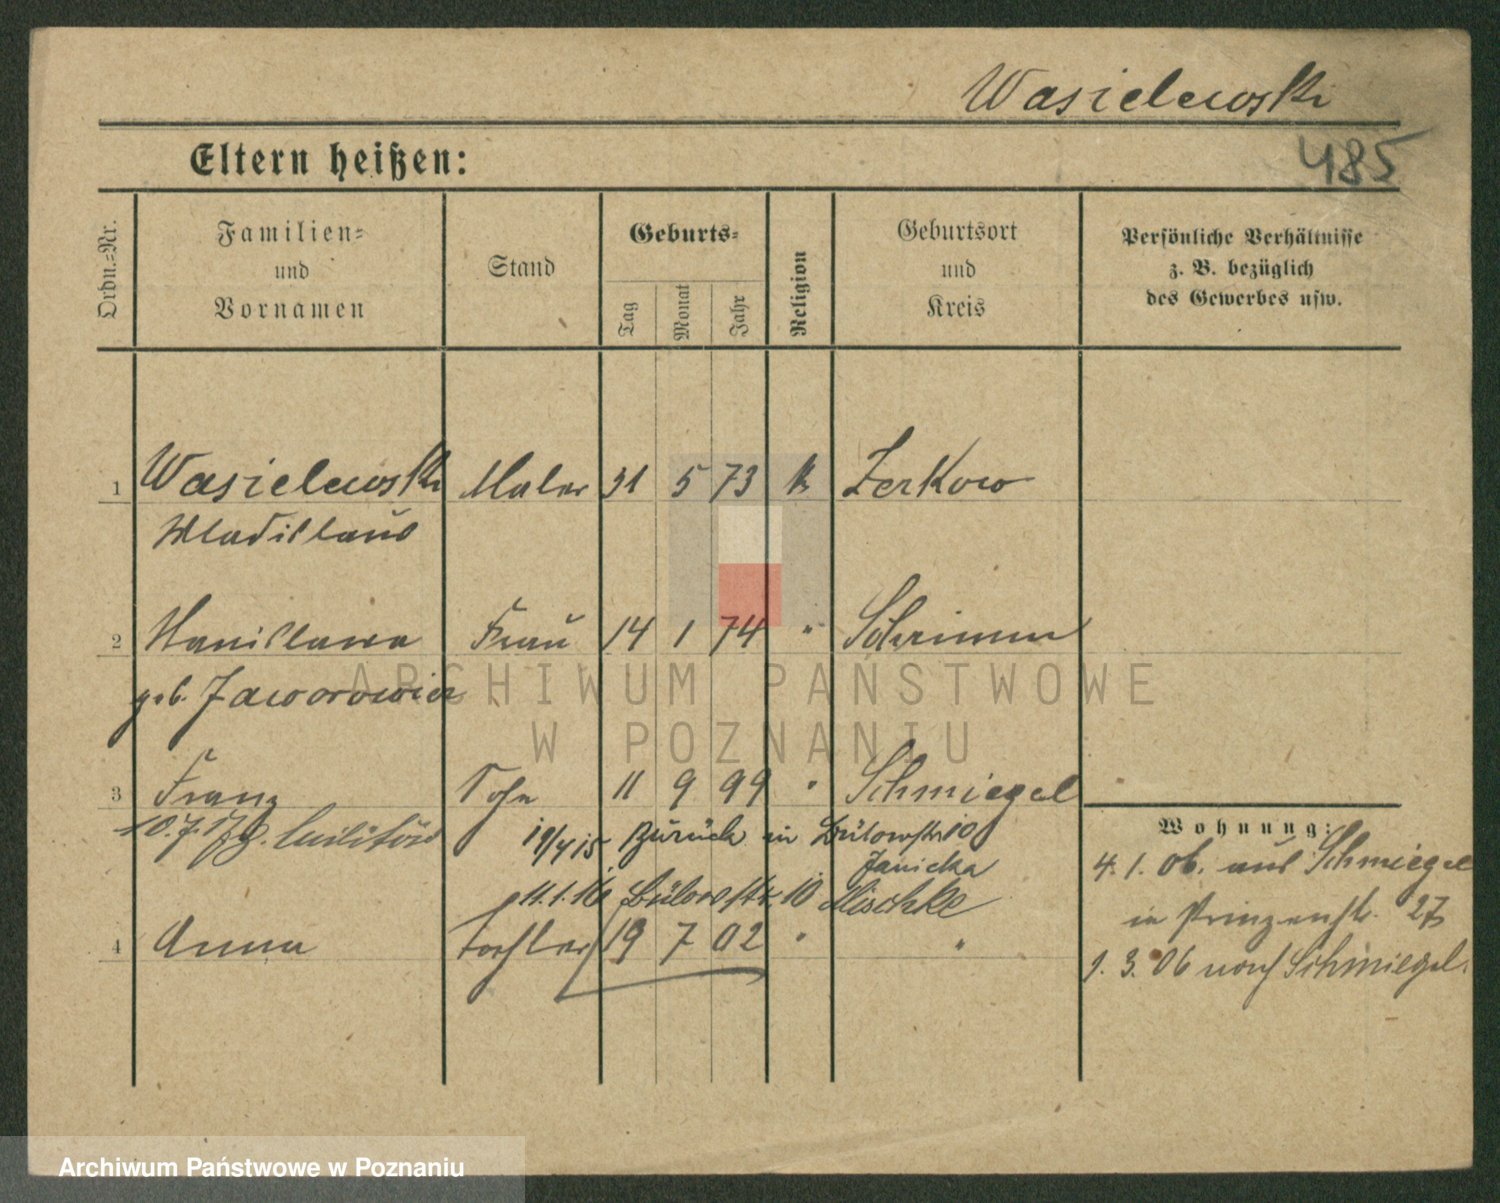 Wasielewski
Eltern heißen:
485
Ordn.=Nr.
Familien=
und
Vornamen
Stand
Geburts=
Tag
Monat
Jahr
Religion
Geburtsort
und
Kreis
Persönliche Verhältnisse
z. B. bezüglich
des Gewerbes usw.
1 Wasielewski Maler 31 5 73 k Zerkow
Wladislaus
2 Stanislawa Frau 14 1 74 " Schrimm
geb. Jaworowicz
3 Franz Sohn 11 9 99 " Schmiegel
10.7.17 z. Militär
19/4 15 zurück in Bülowstr 10
Janicka
11.1.16 Bülowstr. 10 Mischke
4 Anna Tochter 19 7 02 " "
Wohnung:
4. 1. 06. aus Schmiegel
in Prinzenstr. 27
1. 3. 06 nach Schmiegel.
ARCHIWUM PAŃSTWOWE
W POZNANIU
Archiwum Państwowe w Poznaniu